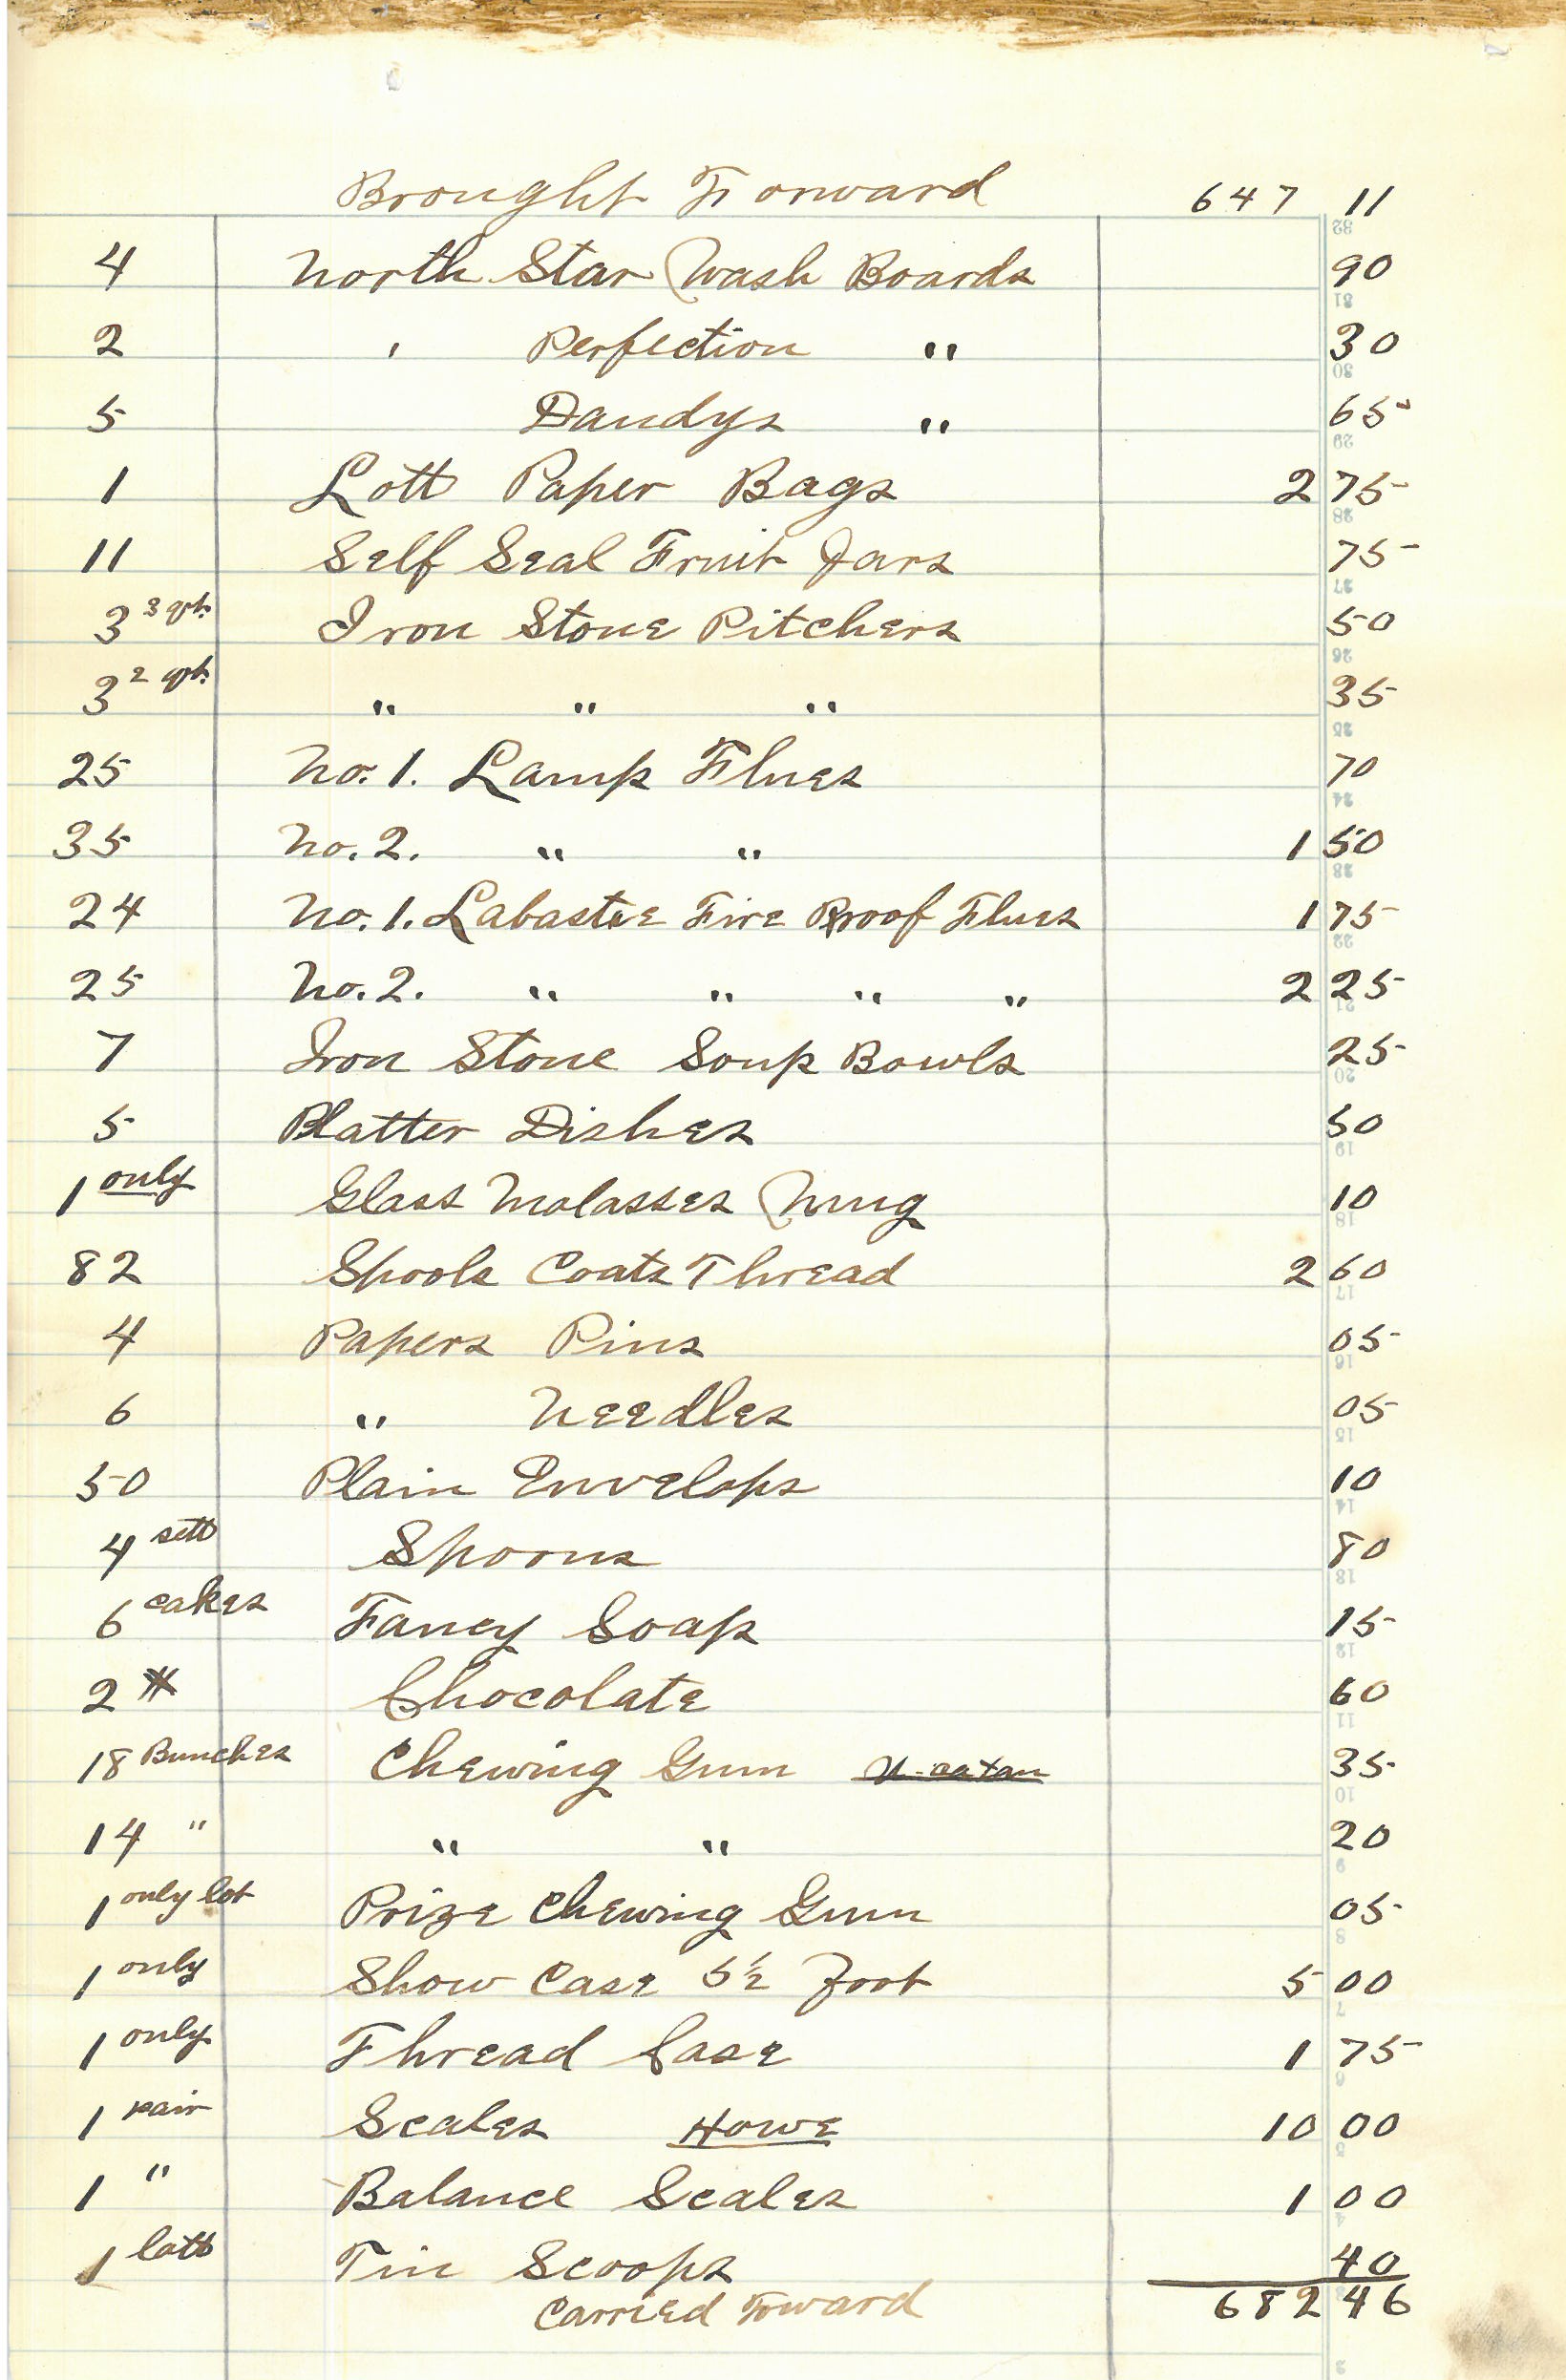 Brought Forward 647 11
4 North Star Wash Boards 90
2 " Perfection " 30
5 Dandys " 65
1 Lott Paper Bags 2 75
11 Self Seal Fruit Jars 75
3 3 qt. Iron Stone Pitchers 50
3 2 qt. " " " 35
25 No. 1. Lamp Flues 70
35 No. 2. " " 1 50
24 No. 1. Labastie Fire Proof Flues 1 75
25 No. 2. " " " " 2 25
7 Iron Stone Soup Bowls 25
5 Platter Dishes 50
1 only Glass Molasses Mug 10
82 Spools Coats Thread 2 60
4 Papers Pins 05
6 " Needles 05
50 Plain Envelops 10
4 sett Spoons 80
6 cakes Fancy Soap 15
2 # Chocolate 60
18 Bunches Chewing Gum 35
14 " " " 20
1 only lot Prize Chewing Gum 05
1 only Show Case 5 1/2 Foot 5 00
1 only Thread Case 1 75
1 pair Scales Howe 10 00
1 " Balance Scales 1 00
1 lott Tin Scoops 40
Carried Forward 682 46